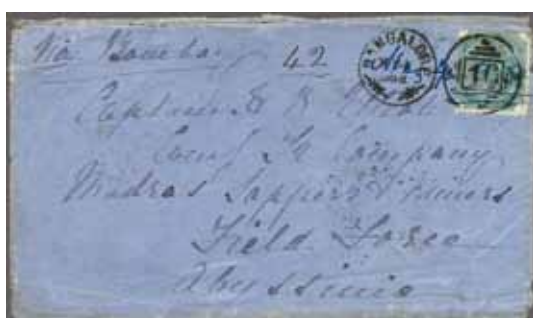 Via Bombay 42
BANGALORE
Captain
Company
Madras Sappers & Miners
Field Force
Abyssinia